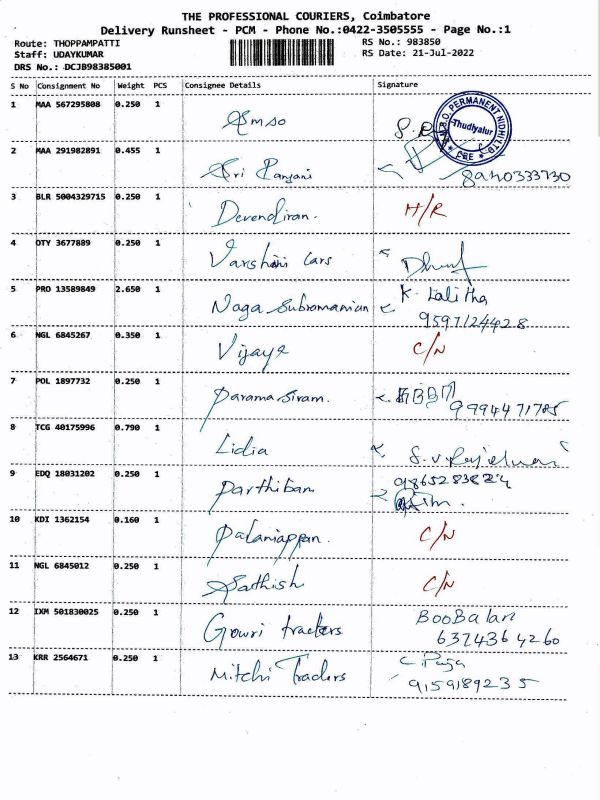 THE PROFESSIONAL COURIERS, Coimbatore
Delivery Runsheet - PCM - Phone No.:0422-3505555 - Page No.:1
Route: THOPPAMPATTI RS No.: 983850
Staff: UDAYKUMAR RS Date: 21-Jul-2022
DRS No.: DCJB98385001
S No Consignment No Weight PCS Consignee Details Signature
1 MAA 567295808 0.250 1 Amso
PERMANENT NIDHI LTD
Thudiyalur
CBE
2 MAA 291982891 0.455 1 Sri Ranjani
3 BLR 5004329715 0.250 1 Devendiran. H/R
4 OTY 3677889 0.250 1 Varshini Cars
5 PRO 13589849 2.650 1 Naga Subramanian K. Lalitha
9597124428
6 NGL 6845267 0.350 1 Vijaya C/N
7 POL 1897732 0.250 1 Parama Sivam.
9994471785
8 TCG 40175996 0.790 1 Lidia
9 EDQ 18031202 0.250 1 Parthiban
10 KDI 1362154 0.160 1 Palaniappan. C/N
11 NGL 6845012 0.250 1 Sathish C/N
12 IXM 501830025 0.250 1 Gowri traders BooBalan
6374364260
13 KRR 2564671 0.250 1 Mitchi Traders
9159189235